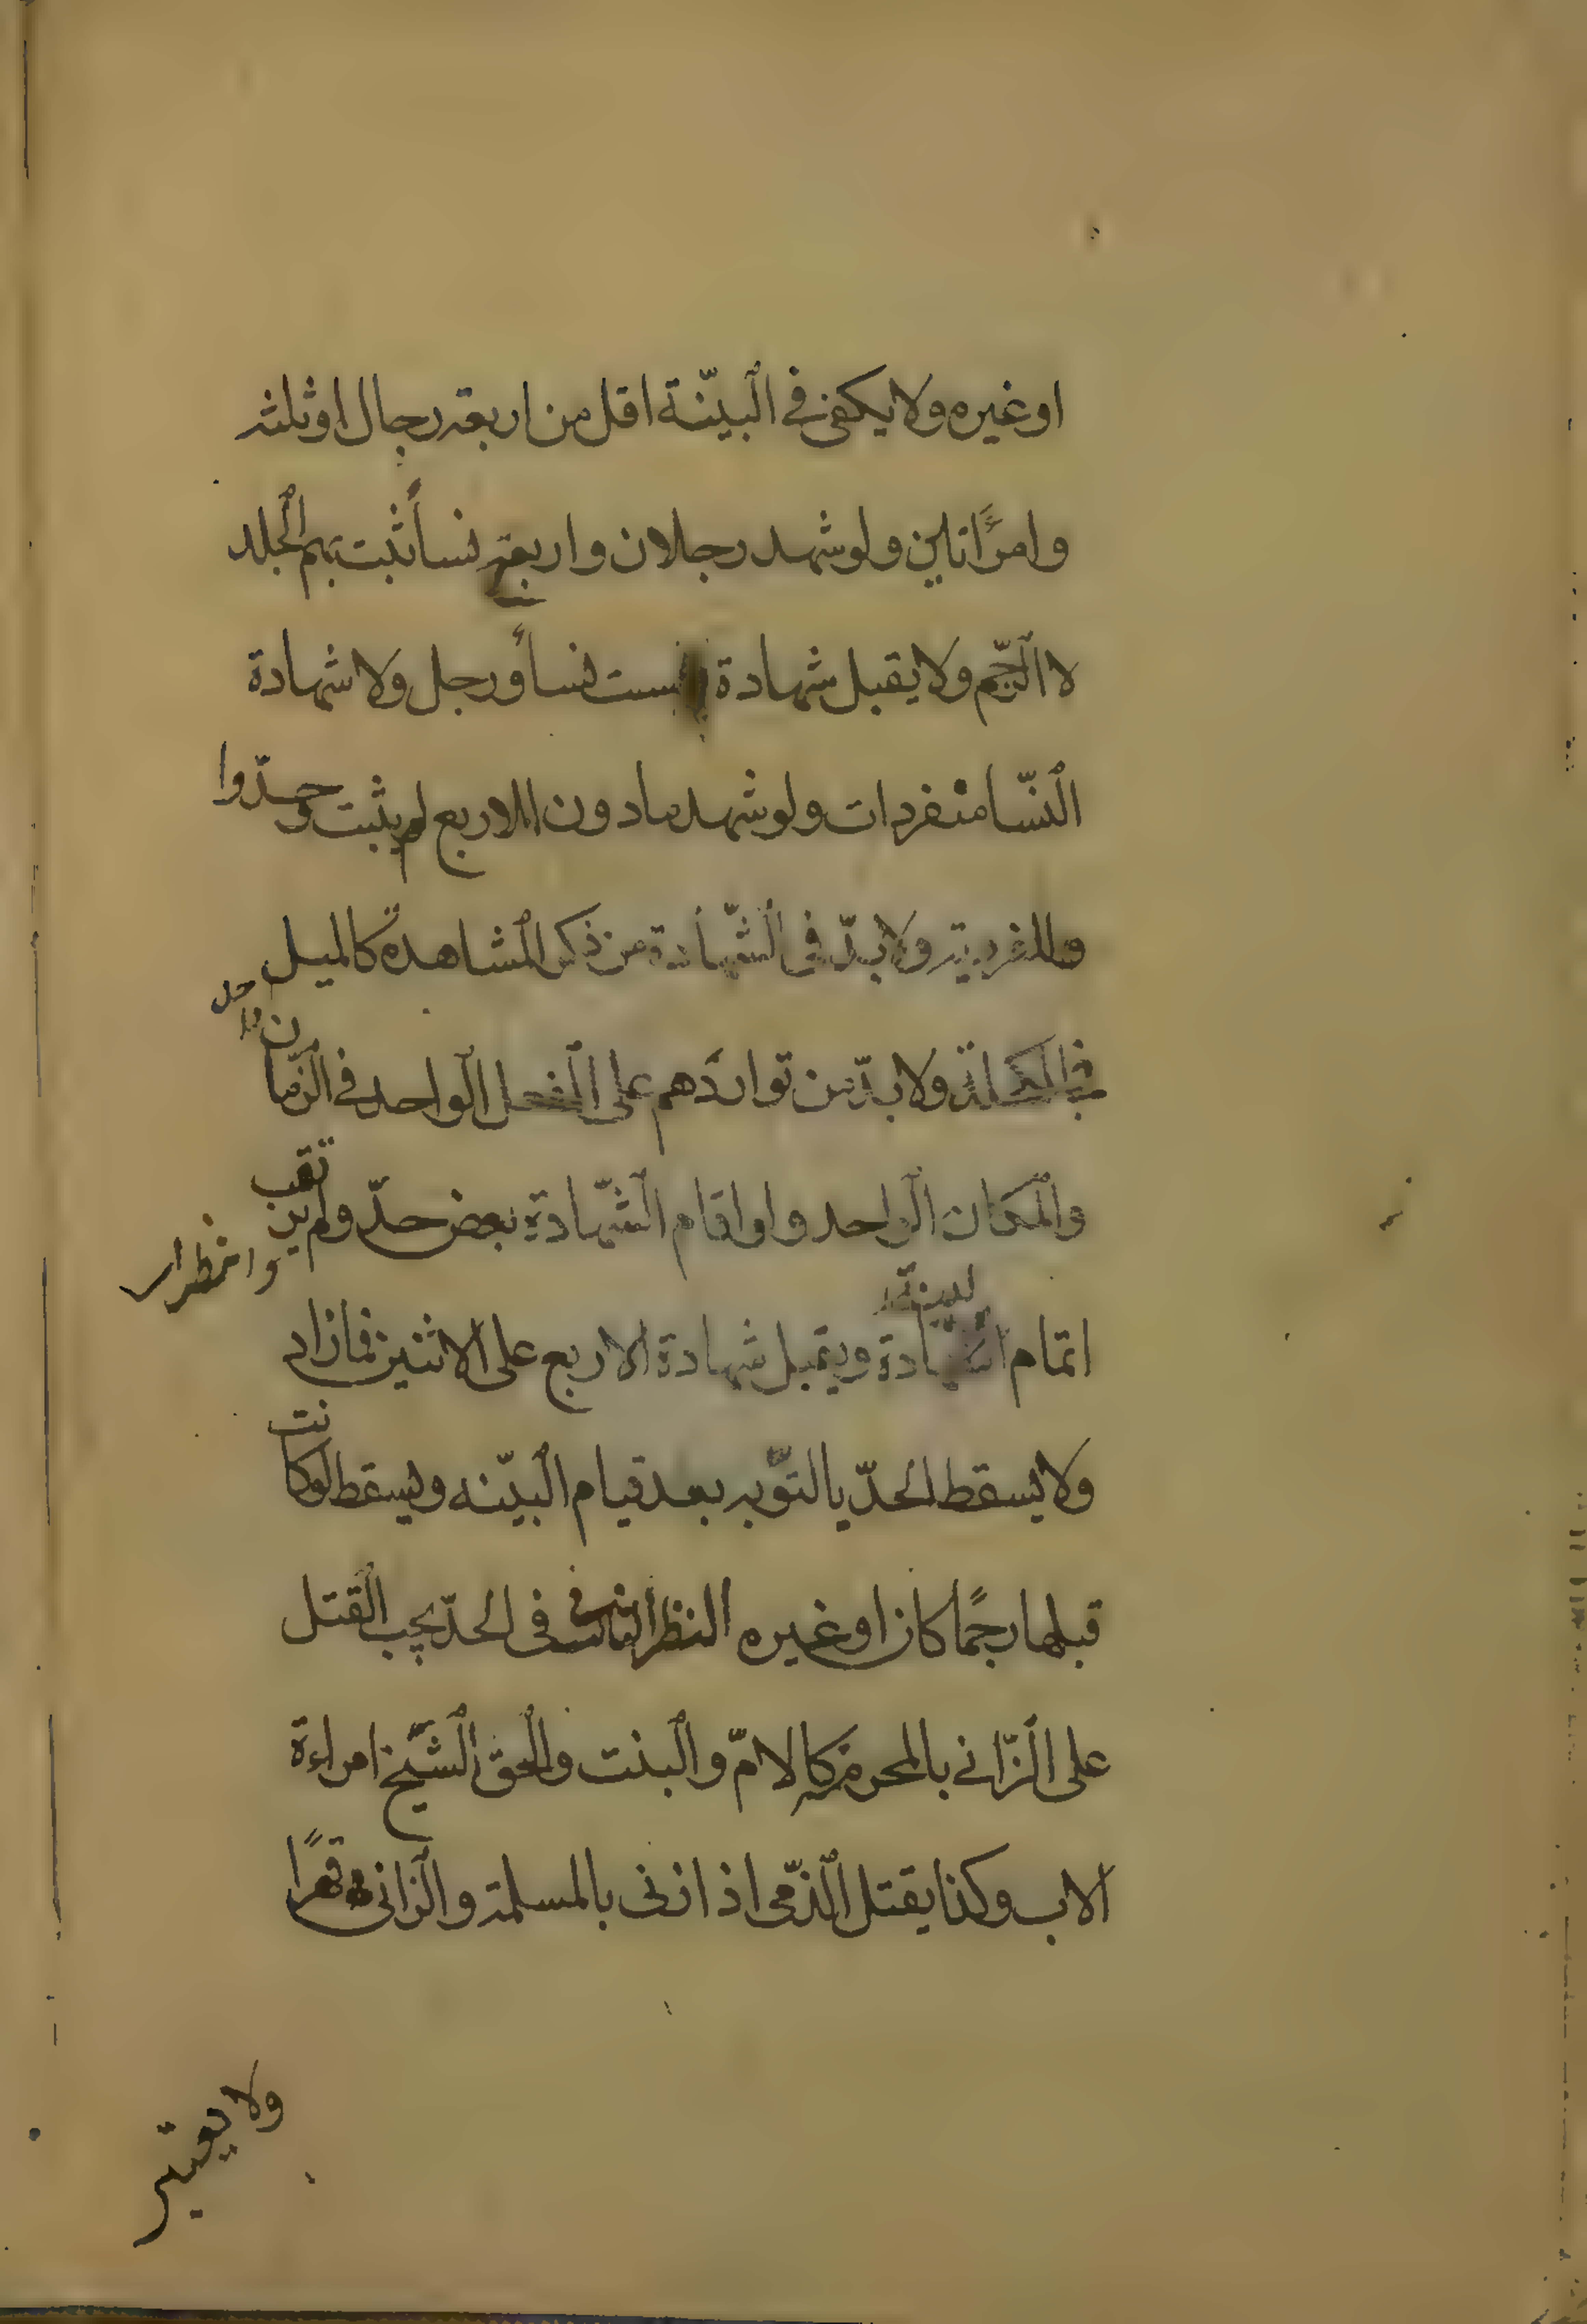 او غيره ولا يكفى في البيّنة اقل من اربعة رجال او ثلثة
وامرأتين ولو شهد رجلان واربع نسأ ثبت بهم الجلد
لا الرّجم ولا يقبل شهادة ست نسأ ورجل ولا شهادة
النّسا منفردات ولو شهد ما دون الاربع لم يثبت وحدّوا
للفرية ولا بدّ في الشّهادة من ذكر المشاهدة كالميل
في المكحلة ولا بدّ من تواردهم على الفعل الواحد في الزّمان الواحد
والمكان الواحد ولو اقام الشّهادة بعض حدّ ولم يرتقب
اتمام البينة ويقبل شهادة الاربع على الاثنين فما زاد
ولا يسقط الحدّ بالتّوبه بعد قيام البيّنه ويسقط لو كانت
قبلها رجمًا كان او غيره النظر الثانى فى الحدّ يجب القتل
على الزّاني بالمحرمة كالامّ والبنت والحق الشّيخ امراءة
الاب وكذا يقتل الذّمى اذا زنى بالمسلمة والزانى قهرًا
ولا يعتبر